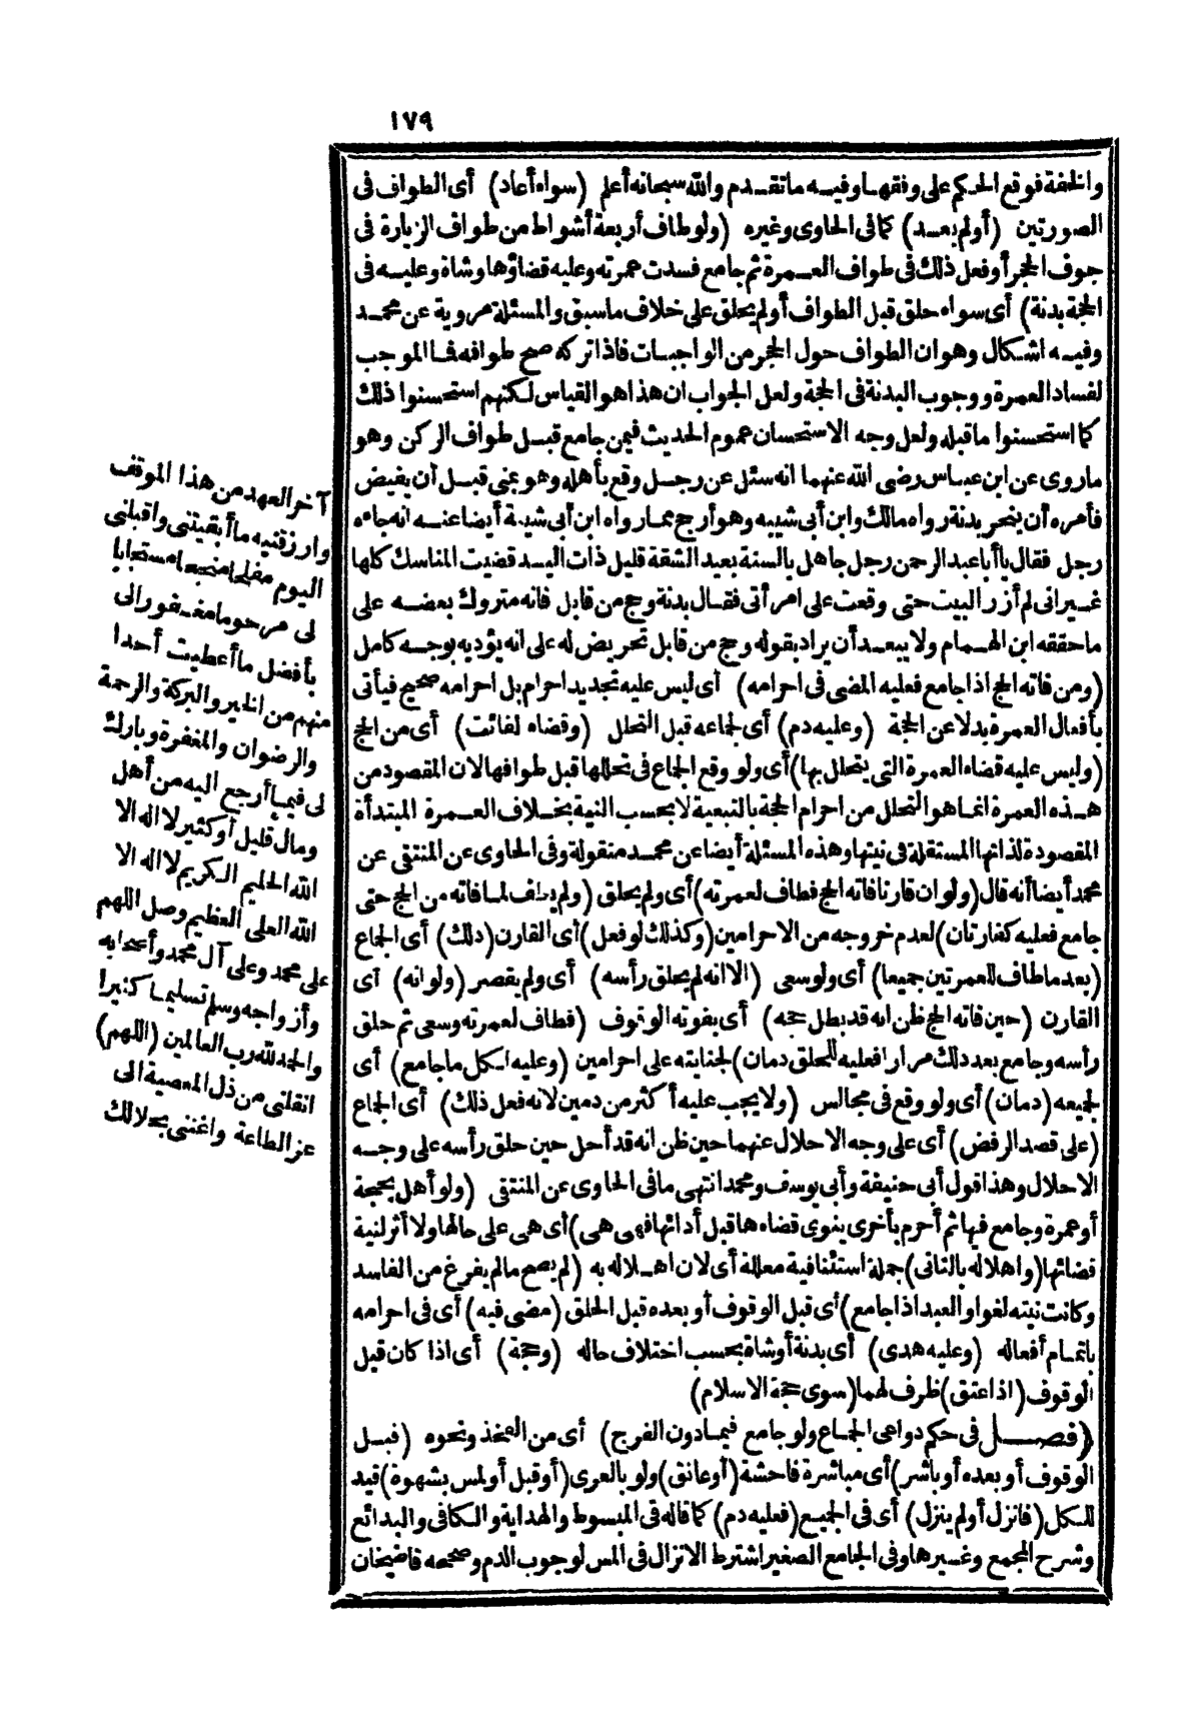 ١٧٩
والخفة فوقع الحكم على وفقهـا وفيـه ما تقـدم والله سبحانه أعلم (سواء أعاد) أى الطواف فى
الصورتين (أولم يعـد) كما فى الحاوى وغيره (ولو طاف أربعة أشواط من طواف الزيارة فى
جوف الحجر أو فعل ذلك فى طواف العـمرة ثم جامع فسدت عمرته وعليه قضاؤها وشاة وعليـه فى
الحجة بدنة) أى سواء حلق قبل الطواف أولم يحلق على خلاف ما سبق والمسئلة مروية عن محمـد
وفيـه اشكال وهو ان الطواف حول الحجر من الواجبات فاذا تركه صح طوافه فما الموجب
لفساد العمرة ووجوب البدنة فى الحجة ولعل الجواب ان هذا هو القياس لكنهم استحسنوا ذلك
كما استحسنوا ما قبله ولعل وجه الاستحسان عموم الحديث فيمن جامع قبـل طواف الركن وهو
ماروى عن ابن عباس رضى الله عنهما انه سئل عن رجـل وقع بأهله وهو بمنى قبـل أن يفيض
فأمره أن ينحر بدنة رواه مالك وابن أبى شيبه وهو أرجح ممـا رواه ابن أبى شيبة أيضا عنـه انه جاءه
رجل فقال يا أبا عبد الرحمن رجل جاهل بالسنة بعيد الشقة قليل ذات اليـد قضيت المناسك كلها
غـير انى لم أزر البيت حتى وقعت على امرأتى فقـال بدنة وحج من قابل فانه متروك بعضـه على
ما حققه ابن الهـمام ولا يبعـد أن يراد بقوله وحج من قابل تحريض له على انه يؤديه بوجـه كامل
(ومن فاته الحج اذا جامع فعليه المضى فى احرامه) أى ليس عليه تجديد احرام بل احرامه صحيح فيأتى
بأفعال العمرة بدلا عن الحجة (وعليه دم) أى لجماعه قبل التحلل (وقضاء لفائت) أى من الحج
(وليس عليه قضاء العمرة التى يتحلل بها) أى ولو وقع الجماع فى تحللها قبل طوافها لان المقصود من
هـذه العمرة انمـا هو التحلل من احرام الحجة بالتبعية لا بحسب النية بخـلاف العـمرة المبتدأة
المقصودة لذاتها المستقلة فى نيتها وهذه المسئلة أيضا عن محمـد منقولة وفى الحاوى عن المنتقى عن
محمد أيضا أنه قال (ولو ان قارنا فاته الحج فطاف لعمرته) أى ولم يحلق (ولم يطف لما فاته من الحج حتى
جامع فعليه كفارتان) لعدم خروجه من الاحرامين (وكذلك لو فعل) أى القارن (ذلك) أى الجماع
(بعد ما طاف للعمرتين جميعا) أى ولو سعى (الا انه لم يحلق رأسه) أى ولم يقصر (ولو انه) أى
القارن (حين فاته الحج ظن انه قد بطل حجه) أى بفوته الوقوف (فطاف لعمرته وسعى ثم حلق
رأسه وجامع بعد ذلك مرارا فعليه للحلق دمان) لجنايته على احرامين (وعليه لكل ما جامع) أى
لجميعه (دمان) أى ولو وقع فى مجالس (ولا يجب عليه أكثر من دمين لانه فعل ذلك) أى الجماع
(على قصد الرفض) أى على وجه الاحلال عنهما حين ظن انه قد أحل حين حلق رأسه على وجـه
الاحلال وهذا قول أبى حنيفة وأبى يوسف ومحمد انتهى ما فى الحاوى عن المنتقى (ولو أهل بحجة
أو عمرة وجامع فيها ثم أحرم بأخرى ينوى قضاءها قبل أدائها فهى هى) أى هى على حالها ولا أثر لنية
قضائها (واهلاله بالثانى) جملة استئنافية معللة أى لان اهـلاله به (لم يصح ما لم يفرغ من الفاسد
وكانت نيته لغوا والعبد اذا جامع) أى قبل الوقوف أو بعده قبل الحلق (مضى فيه) أى فى احرامه
باتمـام أفعاله (وعليه هدى) أى بدنة أو شاة بحسب اختلاف حاله (وحجة) أى اذا كان قبل
الوقوف (اذا عتق) ظرف لهما (سوى حجة الاسلام)
(فصـــل فى حكم دواعى الجمـاع ولو جامع فيمـا دون الفرج) أى من الفخذ ونحوه (قبـل
الوقوف أو بعده أو باشر) أى مباشرة فاحشة (أو عانق) ولو بالعرى (أو قبل أو لمس بشهوة) قيد
للكل (فانزل أولم ينزل) أى فى الجميـع (فعليه دم) كما قاله فى المبسوط والهداية والكافى والبدائع
وشرح المجمع وغـيرها وفى الجامع الصغير اشترط الانزال فى المس لوجوب الدم وصححه قاضيخان
آخر العهد من هذا الموقف
وارزقنيه ما أبقيتنى واقبلنى
اليوم مفلحا منجحا مستجابا
لى مرحوما مغـفورا لى
بأفضل ما أعطيت أحدا
منهم من الخير والبركة والرحمة
والرضوان والمغفرة وبارك
لى فيمـا أرجع اليه من أهل
ومال قليل أو كثير لا اله الا
الله الحليم الـكريم لا اله الا
الله العلى العظيم وصل اللهم
على محمد وعلى آل محمد وأصحابه
وأزواجه وسلم تسليمـا كثيرا
والحمد لله رب العالمين (اللهم)
انقلنى من ذل المعصية الى
عز الطاعة واغننى بحلالك